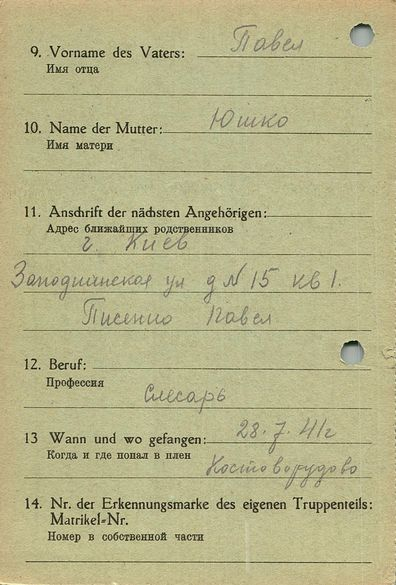 9. Vorname des Vaters: Павел
Имя отца
10. Name der Mutter: Юшко
Имя матери
11. Anschrift der nächsten Angehörigen:
Адрес ближайших родственников
г. Киев
ул д № 15 кв 1.
Павел
12. Beruf:
Профессия
Слесарь
13 Wann und wo gefangen: 28.7.41г
Когда и где попал в плен
14. Nr. der Erkennungsmarke des eigenen Truppenteils:
Matrikel-Nr.
Номер в собственной части